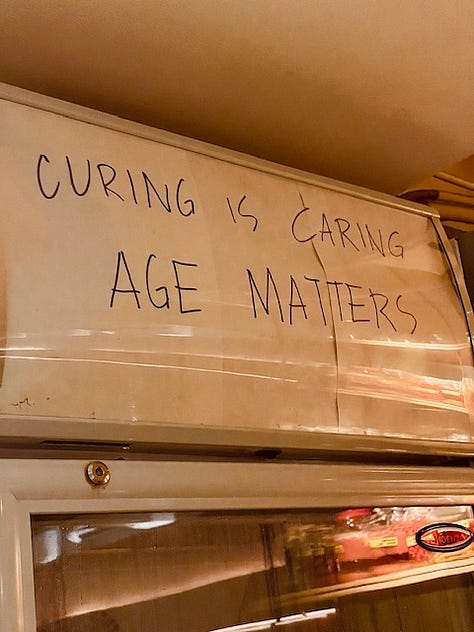 CURING IS CARING
AGE MATTERS